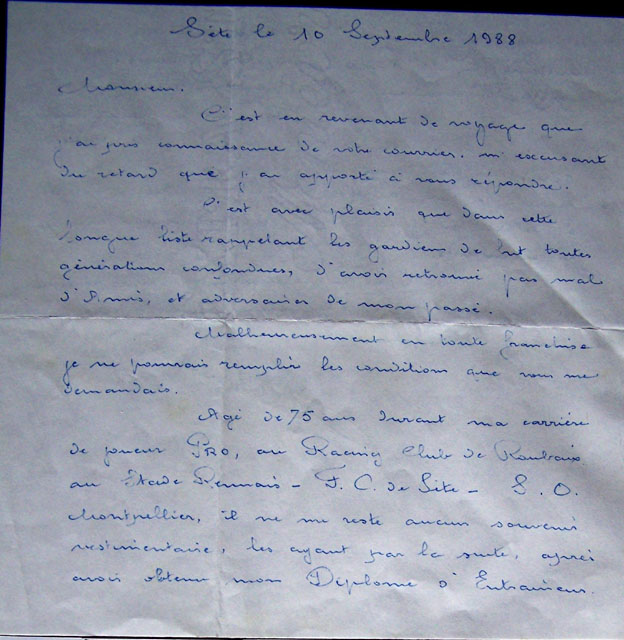 Sète le 10 Septembre 1988
Monsieur.
C'est en revenant de voyage que
j'ai pris connaissance de votre courrier. m'excusant
du retard que j'ai apporté à vous répondre.
C'est avec plaisir que dans cette
longue liste rappelant les gardiens de but toutes
générations confondues, d'avoir retrouvé pas mal
d'Amis, et adversaires de mon passé.
Malheureusement en toute franchise
je ne pourrais remplir les conditions que vous me
demandais.
Agé de 75 ans durant ma carrière
de joueur PRO, au Racing Club de Roubaix
au Stade Rennais - F.C. de Sète - S.O.
Montpellier, il ne me reste aucun souvenir
vestimentaire, les ayant par la suite, après
avoir obtenu mon Diplome d'Entraineur.